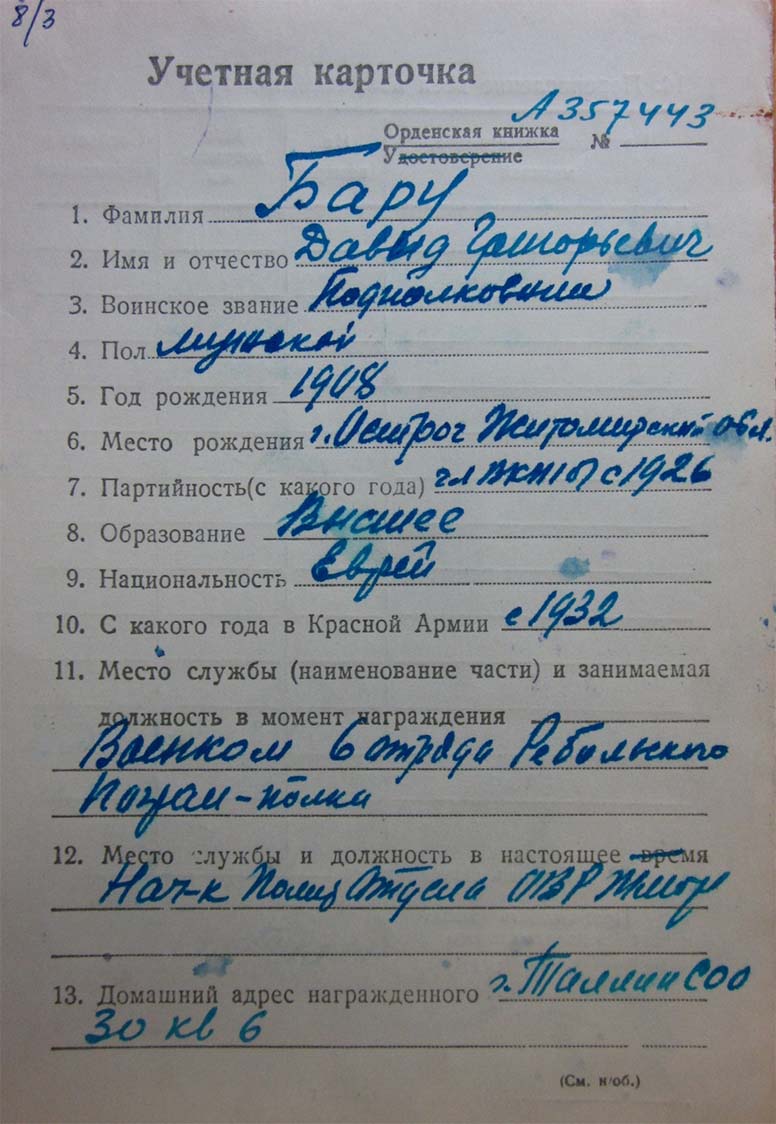 8/3
Учетная карточка
А 357443
Орденская книжка №
Удостоверение
1. Фамилия Бару
2. Имя и отчество Давыд Григорьевич
3. Воинское звание Подполковник
4. Пол мужской
5. Год рождения 1908
6. Место рождения г. Острог Житомирский обл.
7. Партийность(с какого года) чл ВКП(б) с 1926
8. Образование Высшее
9. Национальность Еврей
10. С какого года в Красной Армии с 1932
11. Место службы (наименование части) и занимаемая
должность в момент награждения
Военком 6 отряда Ребольского
Погран-полка
12. Место службы и должность в настоящее время
Нач-к Полит Отдела ОВР
13. Домашний адрес награжденного г. Таллин Соо
30 кв 6
(См. н/об.)